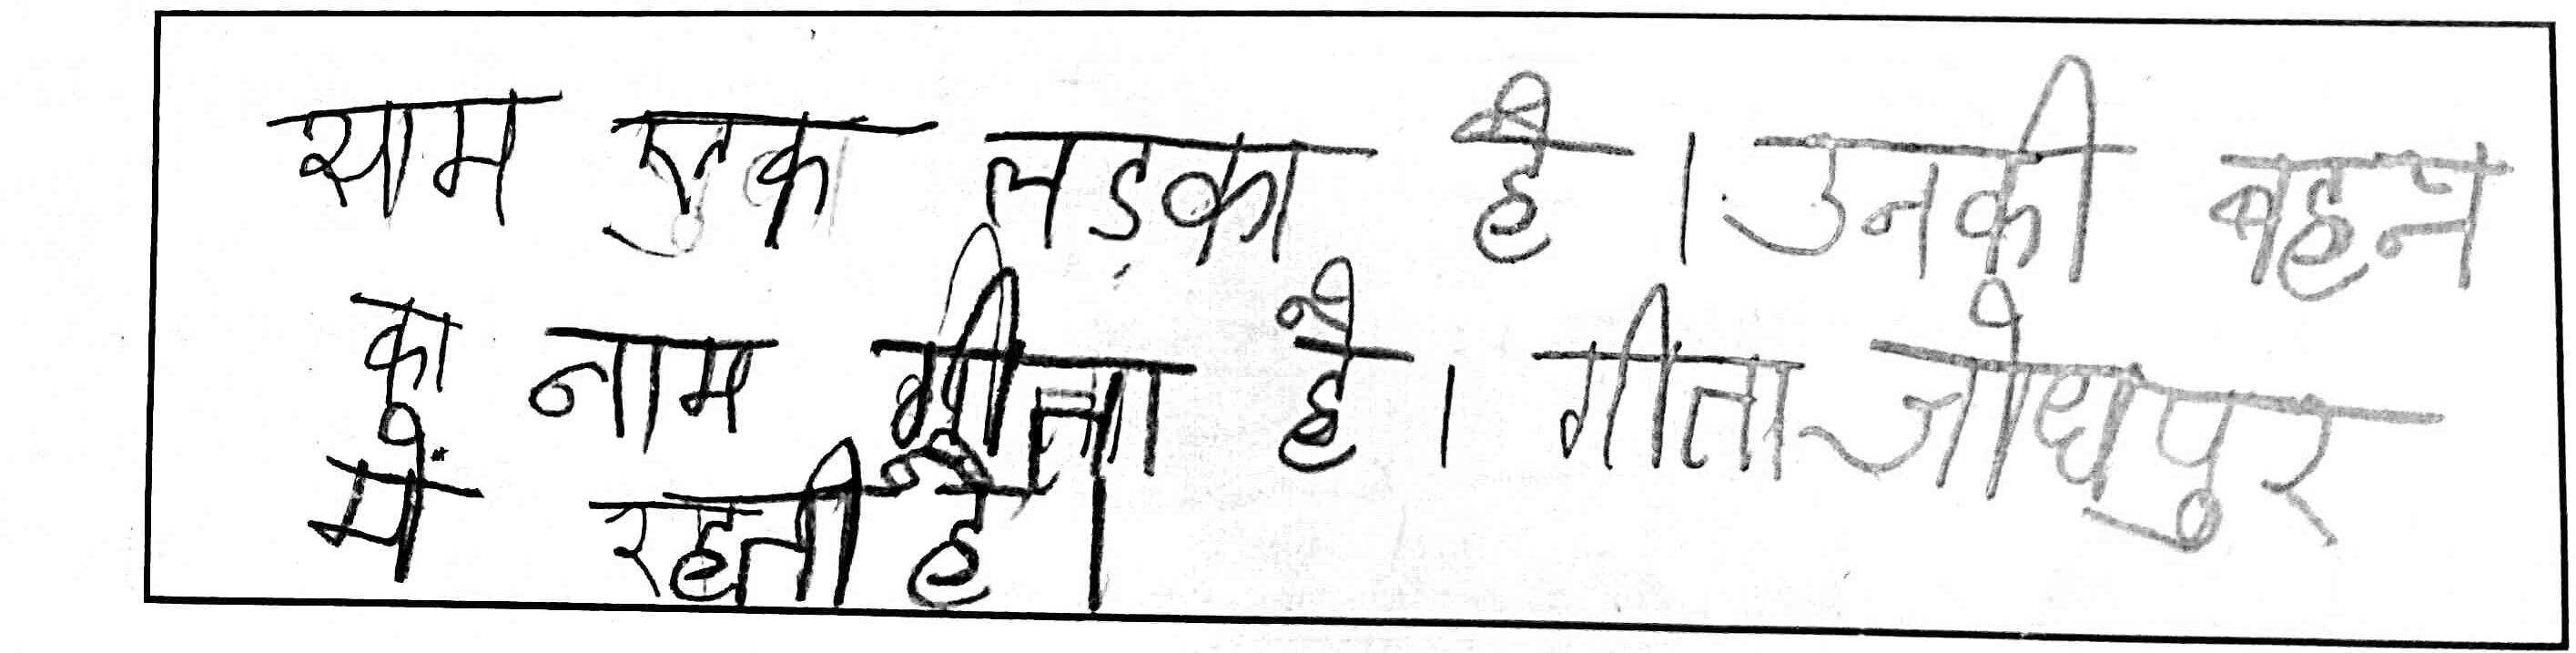 श्याम एक लड़का है। उनकी बहन
का नाम गीता है। गीता जोधपुर
में रहती है।